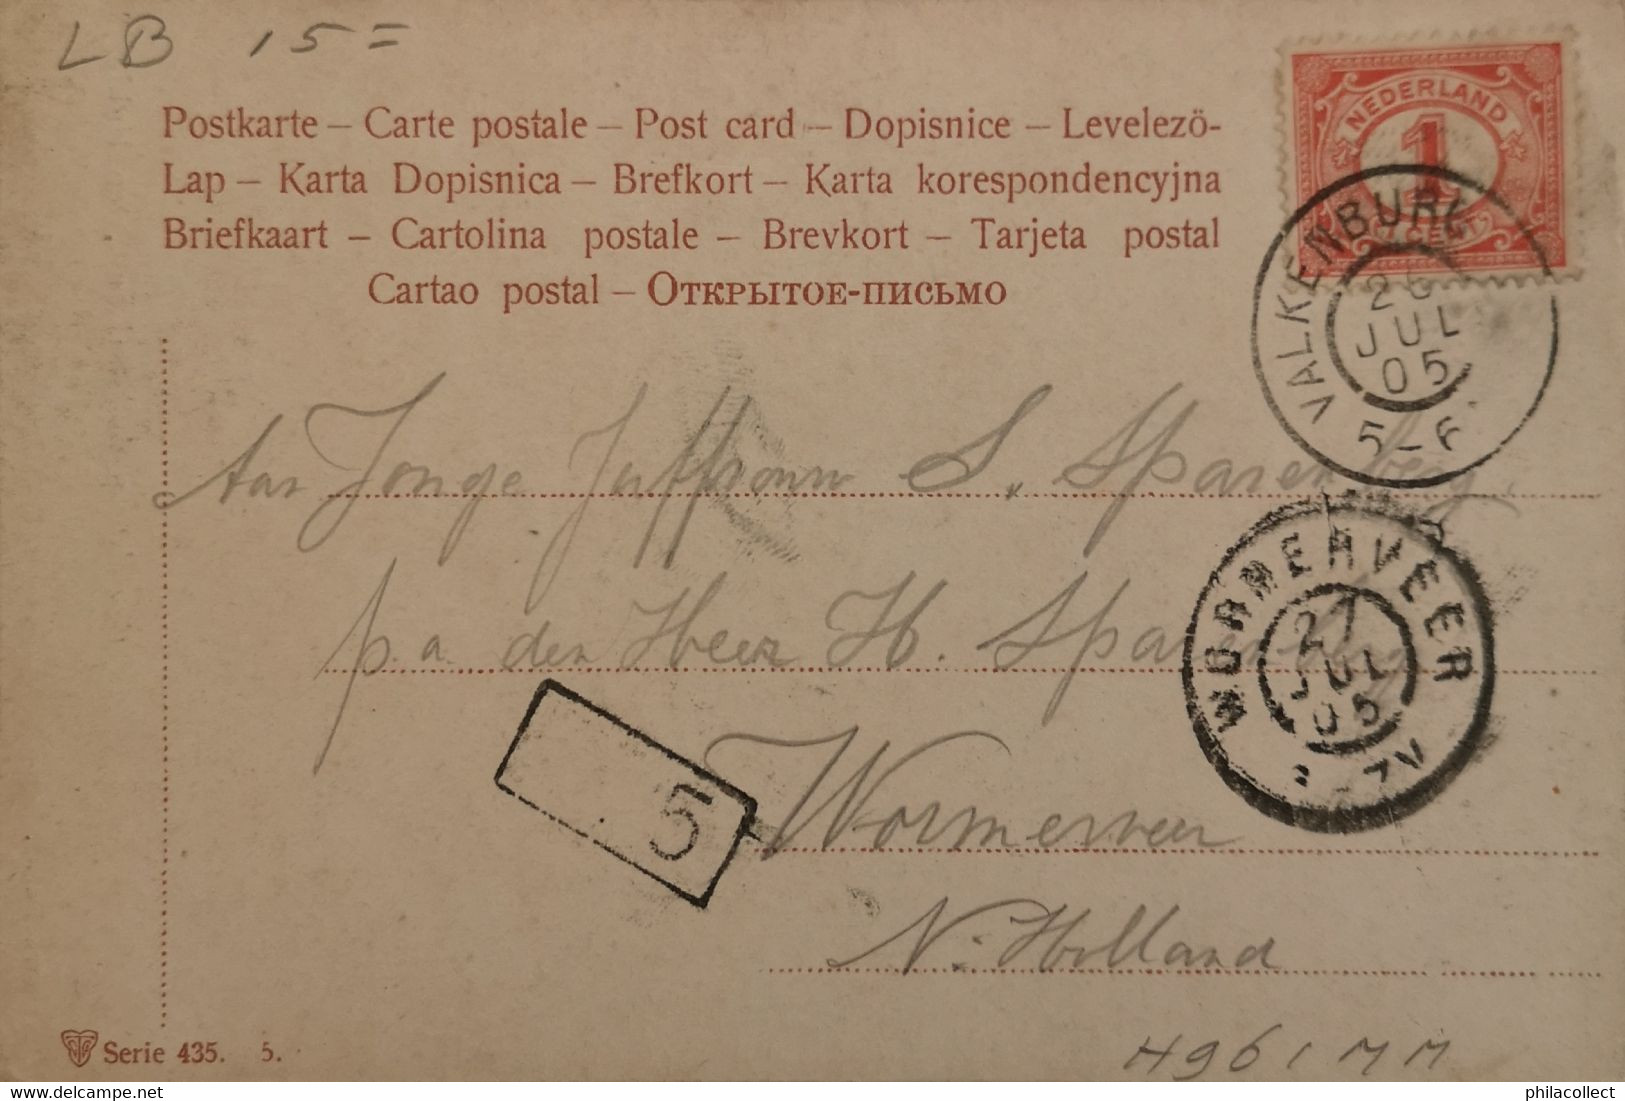 LB 15=
Postkarte – Carte postale – Post card – Dopisnice – Levelezö-
Lap – Karta Dopisnica – Brefkort – Karta korespondencyjna
Briefkaart – Cartolina postale – Brevkort – Tarjeta postal
Cartao postal – Открытое-письмо
NEDERLAND
1
CENT
VALKENBURG
26
JUL
05
5-6
Aan Jonge Juffrouw S. Sparenberg.
p.a. den Heer H. Sparenberg
Wormerveer
N. Holland
WORMERVEER
27
JUL
05
5
Serie 435. 5.
H961MM
philacollect